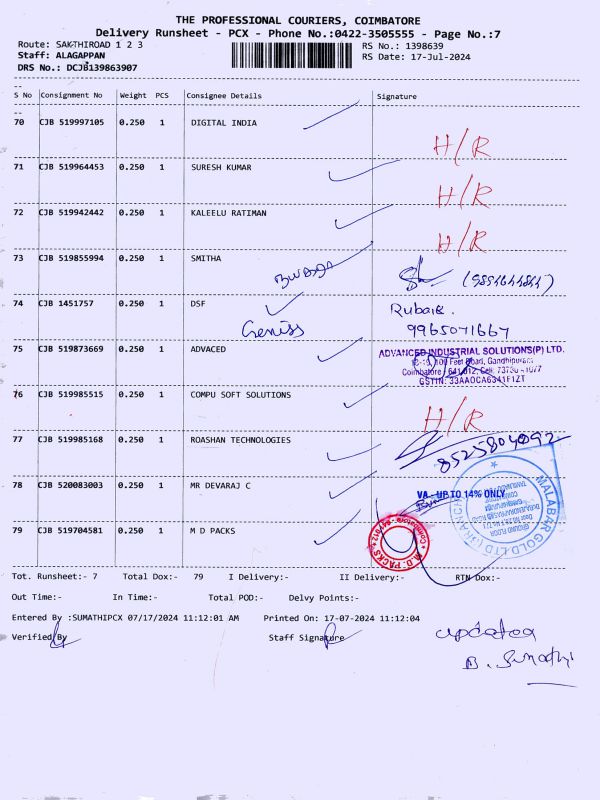 THE PROFESSIONAL COURIERS, COIMBATORE
Delivery Runsheet - PCX - Phone No.:0422-3505555 - Page No.:7
Route: SAKTHIROAD 1 2 3
RS No.: 1398639
Staff: ALAGAPPAN
RS Date: 17-Jul-2024
DRS No.: DCJB139863907
S No Consignment No Weight PCS Consignee Details Signature
70 CJB 519997105 0.250 1 DIGITAL INDIA
H/R
71 CJB 519964453 0.250 1 SURESH KUMAR
H/R
72 CJB 519942442 0.250 1 KALEELU RATIMAN
H/R
73 CJB 519855994 0.250 1 SMITHA
74 CJB 1451757 0.250 1 DSF
Rubaik.
Geniss
9965071667
75 CJB 519873669 0.250 1 ADVACED
ADVANCED INDUSTRIAL SOLUTIONS(P) LTD.
100 Feet Road, Gandhipuram
Coimbatore - 641 012, Cell:
GSTIN: 33AAOCA6341F1ZT
76 CJB 519985515 0.250 1 COMPU SOFT SOLUTIONS
H/R
77 CJB 519985168 0.250 1 ROASHAN TECHNOLOGIES
8525804092
78 CJB 520083003 0.250 1 MR DEVARAJ C
VA - UP TO 14% ONLY
MALABAR GOLD LTD (BRANCH)
79 CJB 519704581 0.250 1 M D PACKS
M.D. PACKS
Coimbatore - 641 012
Tot. Runsheet:- 7 Total Dox:- 79 I Delivery:- II Delivery:- RTN Dox:-
Out Time:- In Time:- Total POD:- Delvy Points:-
Entered By :SUMATHIPCX 07/17/2024 11:12:01 AM Printed On: 17-07-2024 11:12:04
Verified By Staff Signature
updated
B. Sumathi